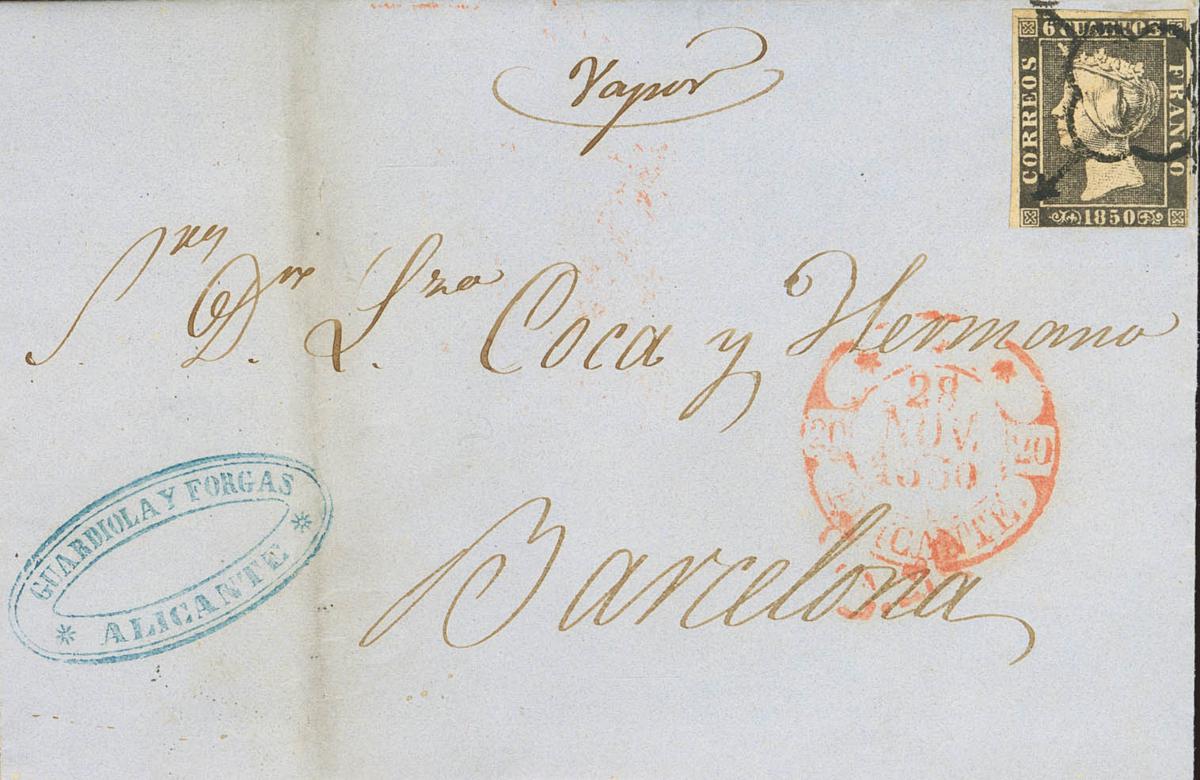 Vapor
6 CUARTOS
CORREOS
FRANCO
1850
S.res D.n L.zo Coca y Hermano
28
NOV.
1850
20
20
ALICANTE.
GUARDIOLA Y FORGAS
ALICANTE
Barcelona